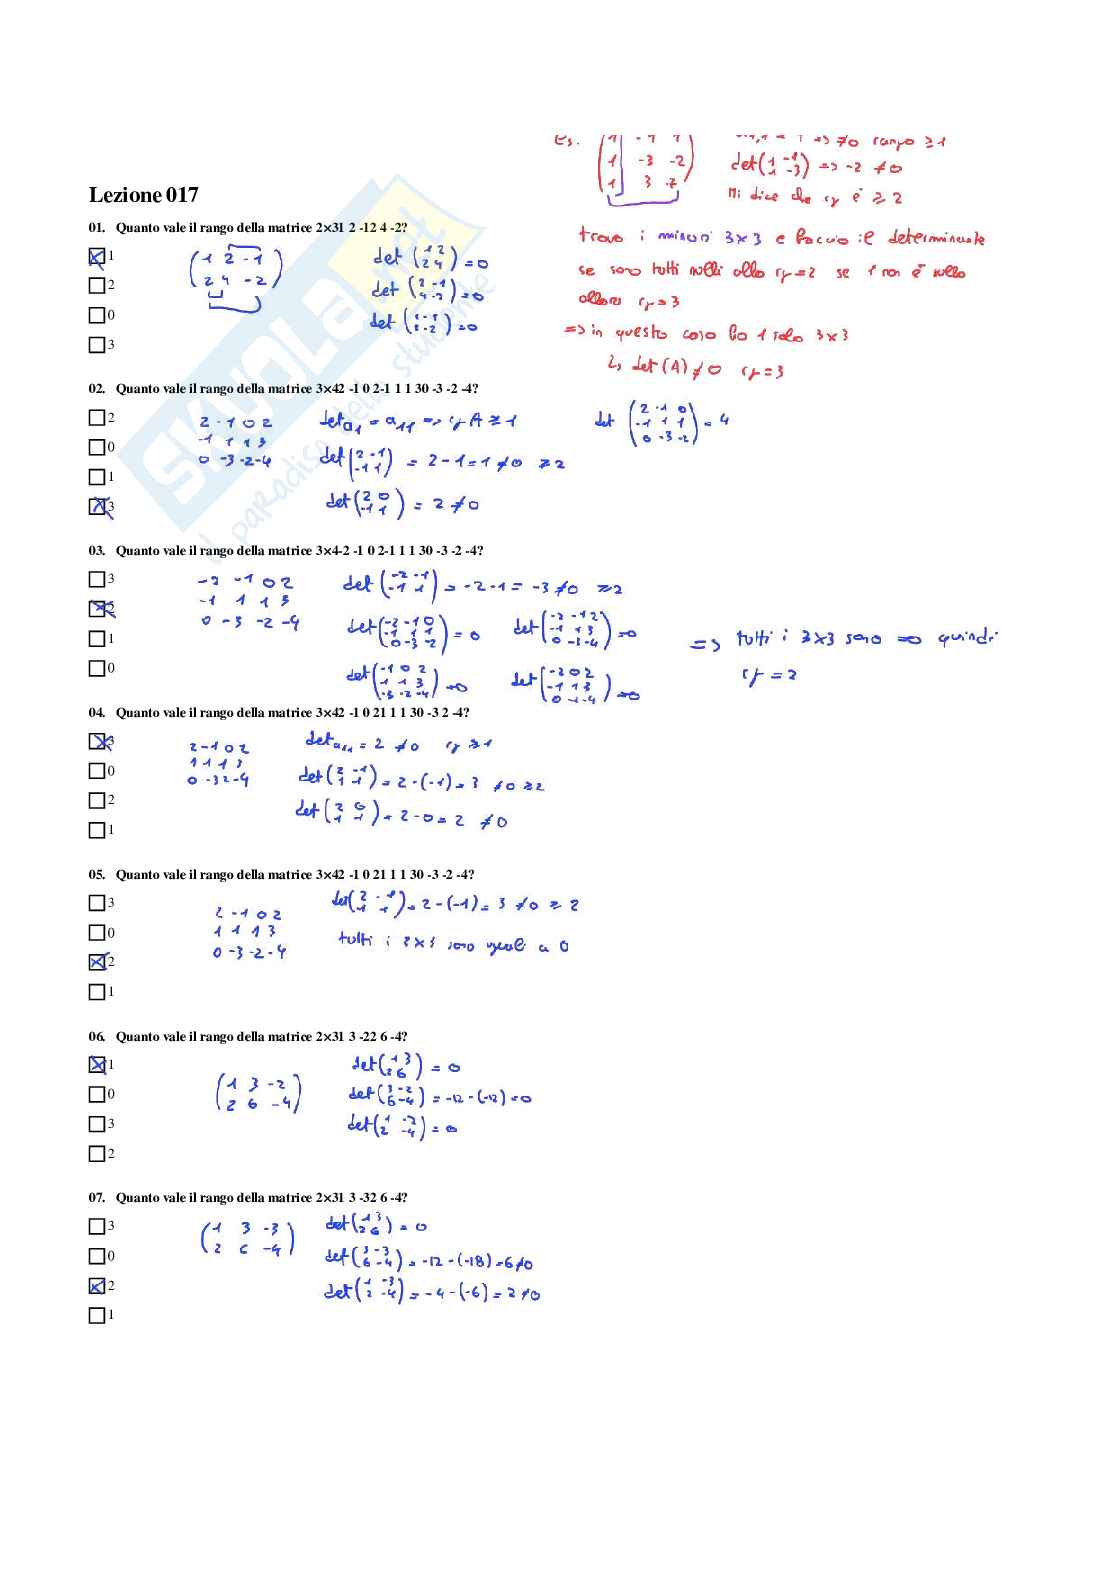 Es. ( 1 -1 1
1 -3 -2
1 3 7 )
=> ≠0 rango ≥1
det( 1 -1 1 -3 ) => -2 ≠0
Mi dice che rg è ≥ 2
trovo i minori 3x3 e faccio il determinante
se sono tutti nulli allora rg=2 se 1 non è nullo
allora rg=3
=> in questo caso ho 1 solo 3x3
det(A)≠0 rg=3
Lezione 017
01. Quanto vale il rango della matrice 2×31 2 -12 4 -2?
1
2
0
3
( 1 2 -1
2 4 -2 )
det ( 1 2 2 4 ) =0
det ( 2 -1 4 -2 ) =0
det ( 1 -1 2 -2 ) =0
02. Quanto vale il rango della matrice 3×42 -1 0 2-1 1 1 30 -3 -2 -4?
2
0
1
3
2 -1 0 2
-1 1 1 3
0 -3 -2 -4
det a1 = a11 => rg A ≥ 1
det( 2 -1 -1 1 ) = 2-1=1≠0 ≥2
det( 2 0 -1 1 ) = 2 ≠0
det ( 2 -1 0 -1 1 1 0 -3 -2 ) = 4
03. Quanto vale il rango della matrice 3×4-2 -1 0 2-1 1 1 30 -3 -2 -4?
3
2
1
0
-2 -1 0 2
-1 1 1 3
0 -3 -2 -4
det( -2 -1 -1 1 ) = -2-1= -3≠0 ≥2
det( -2 -1 0 -1 1 1 0 -3 -2 ) = 0
det( -2 -1 2 -1 1 3 0 -3 -4 ) =0
det( -1 0 2 1 1 3 -3 -2 -4 ) =0
det( -2 0 2 -1 1 3 0 -1 -4 ) =0
=> tutti i 3x3 sono =0 quindi
rg = 2
04. Quanto vale il rango della matrice 3×42 -1 0 21 1 1 30 -3 2 -4?
3
0
2
1
2 -1 0 2
1 1 1 3
0 -3 2 -4
det a11 = 2 ≠0 rg ≥1
det( 2 -1 1 1 ) = 2-(-1) = 3 ≠0 ≥2
det( 2 0 1 1 ) = 2-0= 2 ≠0
05. Quanto vale il rango della matrice 3×42 -1 0 21 1 1 30 -3 -2 -4?
3
0
2
1
2 -1 0 2
1 1 1 3
0 -3 -2 -4
det( 2 -1 1 1 ) = 2-(-1) = 3 ≠0 ≥ 2
tutti i 3x3 sono uguali a 0
06. Quanto vale il rango della matrice 2×31 3 -22 6 -4?
1
0
3
2
( 1 3 -2
2 6 -4 )
det( 1 3 2 6 ) = 0
det( 3 -2 6 -4 ) = -12-(-12)=0
det( 1 -2 2 -4 ) = 0
07. Quanto vale il rango della matrice 2×31 3 -32 6 -4?
3
0
2
1
( 1 3 -3
2 6 -4 )
det( 1 3 2 6 ) = 0
det( 3 -3 6 -4 ) = -12-(-18)=6≠0
det( 1 -3 2 -4 ) = -4-(-6) = 2 ≠0
SKUOLA.net
il paradiso dello studente